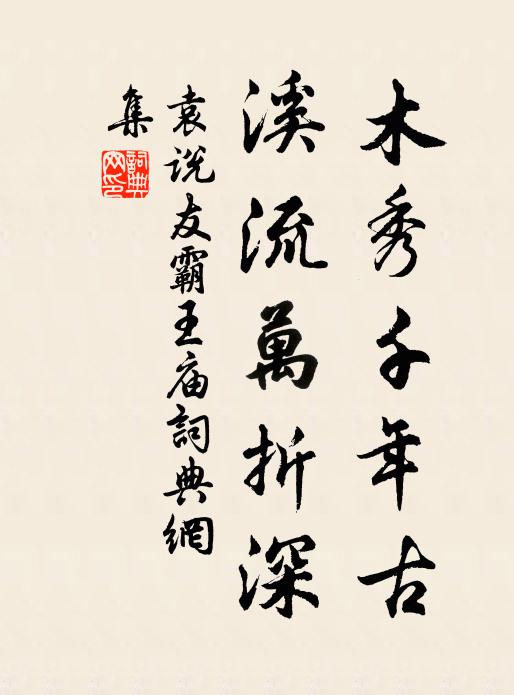 木秀千年古
溪流萬折深
袁说友霸王庙詞典網
集
詞典网印